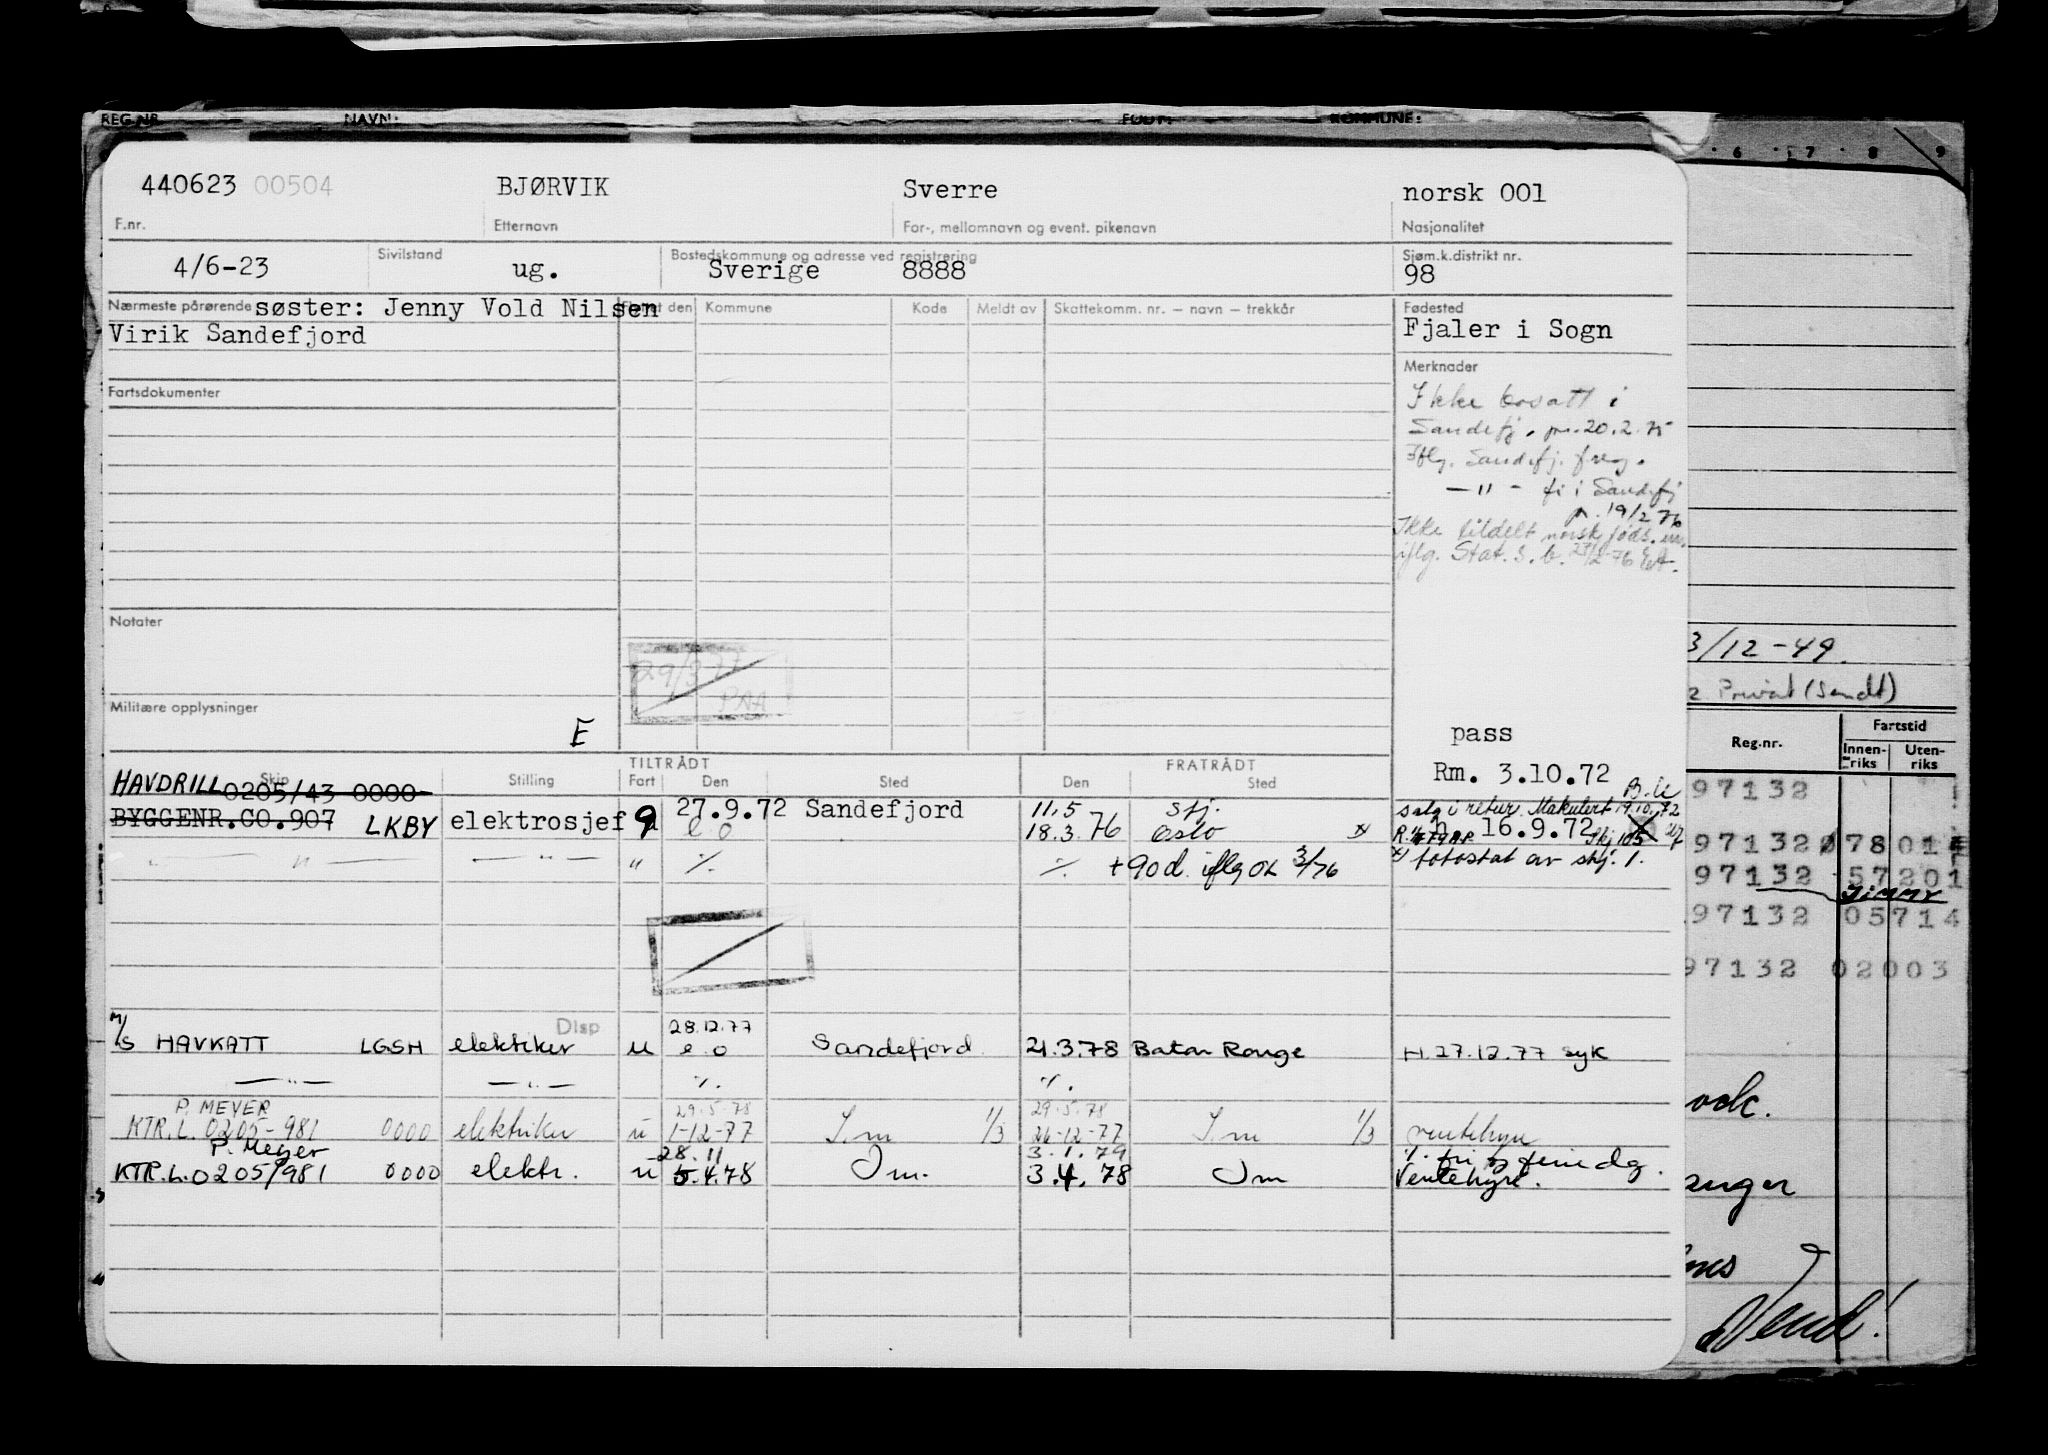 REG.NR. NAVN: FØDT: KOMMUNE:
6 7 8 9
440623 00504 BJØRVIK Sverre norsk 001
F.nr. Etternavn For-, mellomnavn og event. pikenavn Nasjonalitet
Sivilstand Bostedskommune og adresse ved registrering Sjøm.k.distrikt nr.
4/6-23 ug. Sverige 8888 98
Nærmeste pårørende søster: Jenny Vold Nilsen
Virik Sandefjord
den Kommune Kode Meldt av Skattekomm. nr. – navn – trekkår Fødested
Fjaler i Sogn
Merknader
Fartsdokumenter
Ikke bosatt i
Sandefj. pr. 20.2.75
Iflg. Sandefj. freg.
— " – fr i Sandefj
pr. 19/2 76
Ikke tildelt norsk føds. nr.
iflg. Stat. s. b. 23/2-76
Notater
29/3 77
PAA
3/12-49.
Privat (Sandt)
Militære opplysninger
E
pass
Rm. 3.10.72
Reg.nr. Fartstid
Innen-riks Uten-riks
TILTRÅDT FRATRÅDT
Skip Stilling Fart Den Sted Den Sted
HAVDRILL 0205/43 0000
BYGGENR.CO.907 LKBY elektrosjef 9 27.9.72 Sandefjord 11.5 Stj.
e o 18.3.76 Oslo *
salg i retur. Makulert 19.10.72
h 16.9.72
— " — — " — " ·/. ·/. +90d. iflg OK 3/76 *) fotostat av stj. 1.
97132
97132 0 7801
97132 57201
JIMMY
97132 05714
97132 02003
M/S HAVKATT LGSH elektriker Disp u 28.12.77 e o Sandefjord 21.3.78 Baton Rouge H. 27.12.77 syk
— " — — " — ·/. ·/.
P. MEYER 29.5.78 29.5.78
KTR.L. 0205-981 0000 elektriker u 1-12-77 I.m 1/3 26-12-77 I.m 1/3 ventehyre
P. Meyer 28.11 3.1.79
KTR.L.0205/981 0000 elektr. u 5.4.78 Om. 3.4.78 Om Ventehyre.
anger
Vend!